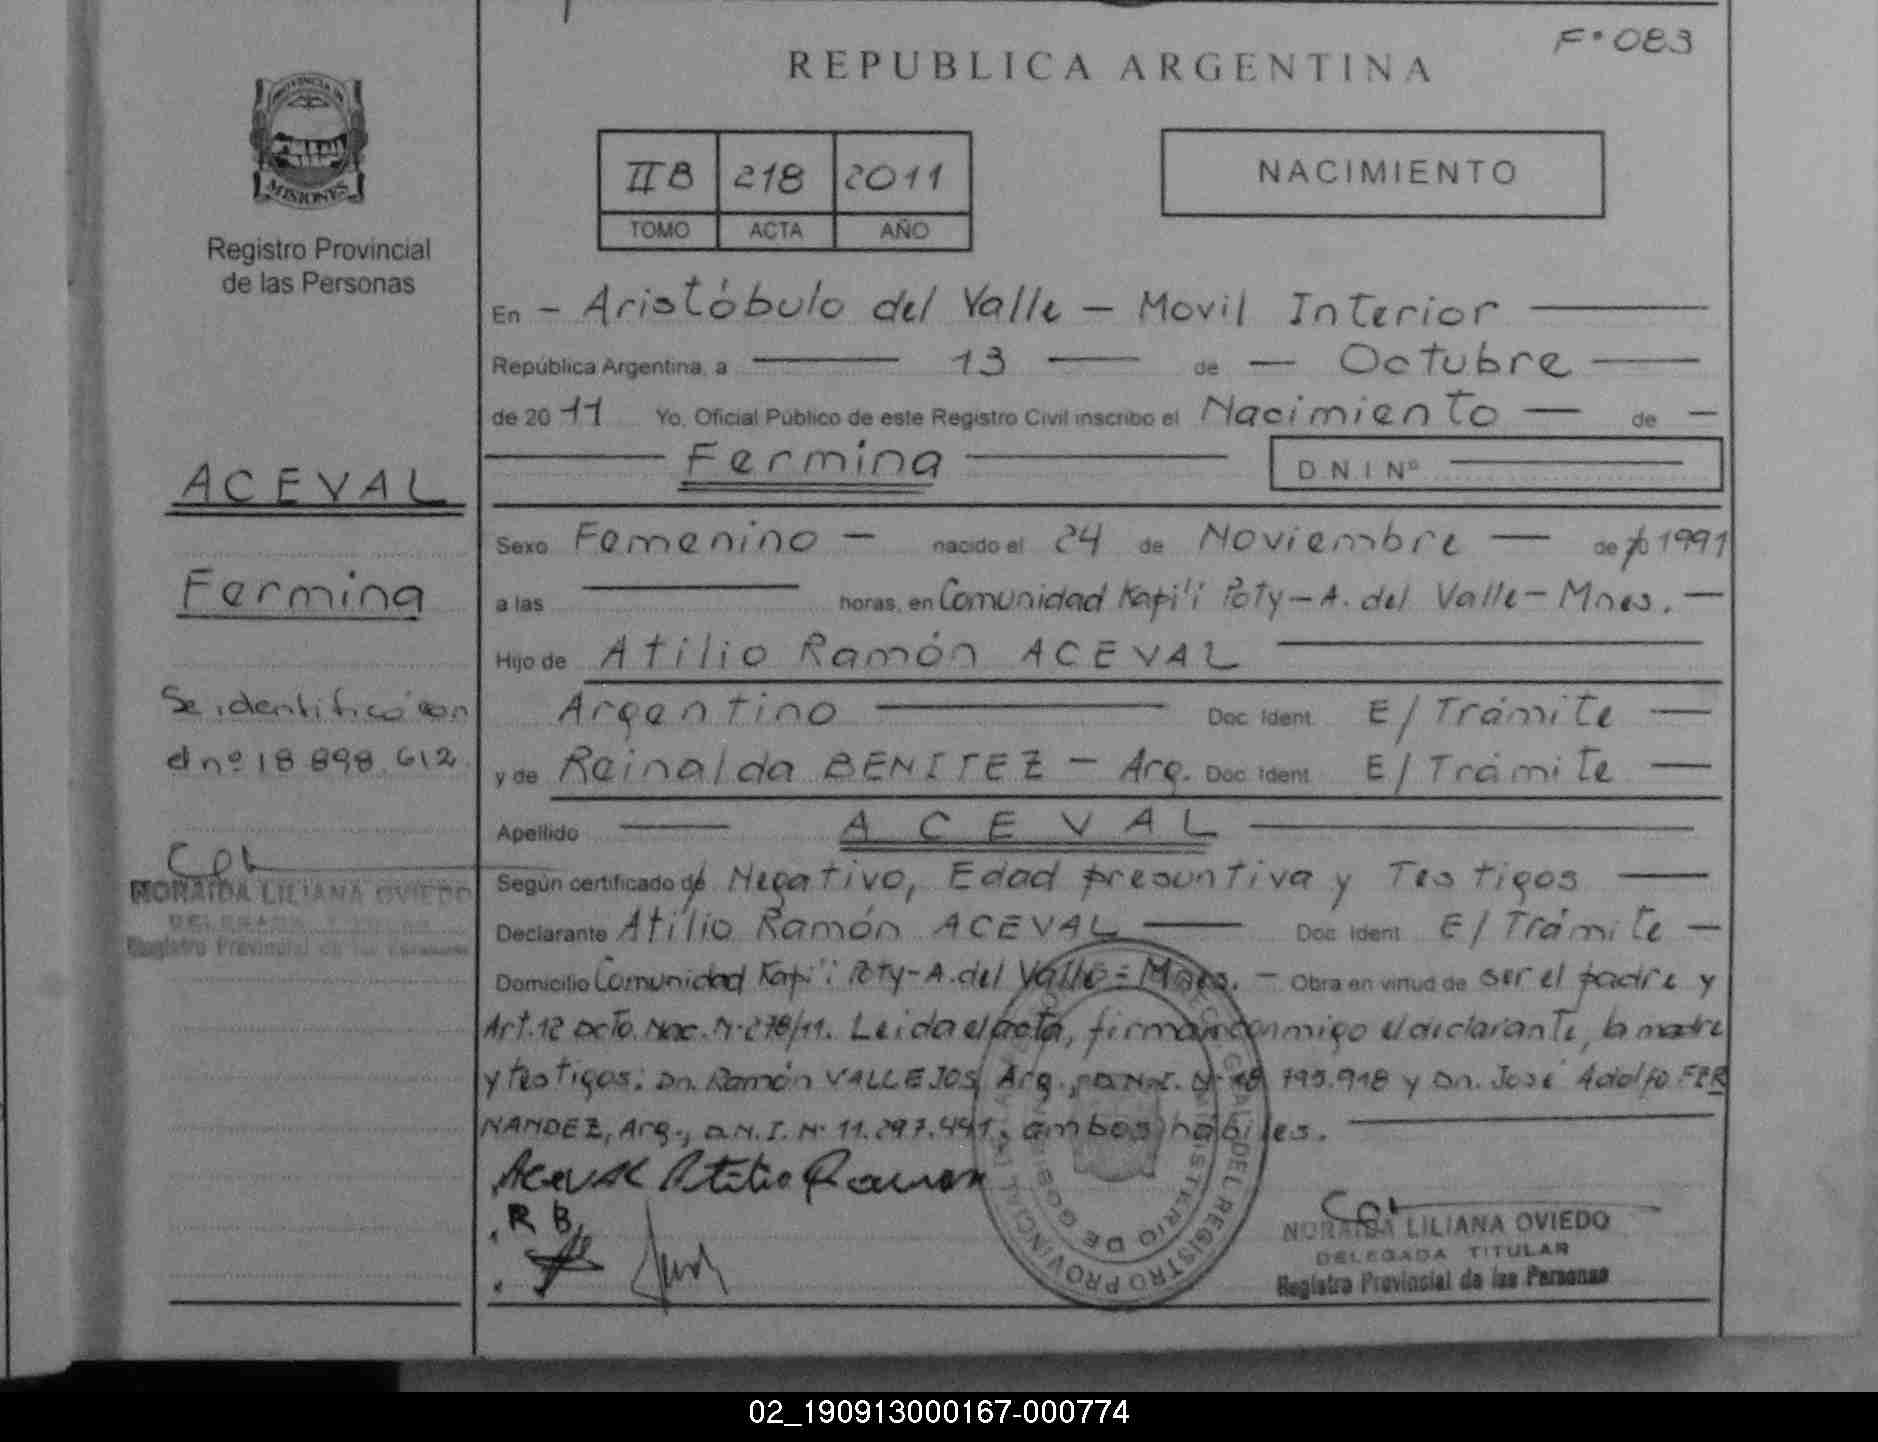 F° 083
REPUBLICA ARGENTINA
PROVINCIA DE
MISIONES
Registro Provincial
de las Personas
II B 218 2011
TOMO ACTA AÑO
NACIMIENTO
En - Aristóbulo del Valle - Movil Interior
República Argentina, a 13 de - Octubre
de 20 11 Yo, Oficial Público de este Registro Civil inscribo el Nacimiento - de -
Fermina D.N.I Nº
ACEVAL
Fermina
Se identificó con
d nº 18 898 612
NORAIDA LILIANA OVIEDO
DELEGADA TITULAR
Registro Provincial de las Personas
Sexo Femenino - nacido el 24 de Noviembre - de 1991
a las horas, en Comunidad Kapi'i Poty - A. del Valle - Mnes. -
Hijo de Atilio Ramón ACEVAL
Argentino Doc. Ident. E/Trámite
y de Reinalda BENITEZ - Arg. Doc. Ident. E/Trámite
Apellido ACEVAL
Según certificado de Negativo, Edad presuntiva y Testigos
Declarante Atilio Ramón ACEVAL Doc. Ident. E/Trámite -
Domicilio Comunidad Kapi'i Poty - A. del Valle - Mnes. - Obra en virtud de ser el padre y
Art. 12 Dcto. Nac. N° 278/11. Leida el acta, firman conmigo el declarante, la madre
y testigos: Dn. Ramón VALLEJOS, Arg., D.N.I. N° 18 795.918 y Dn. José Adolfo FER
NANDEZ, Arg., D.N.I. N° 11.297.441, ambos hábiles.
Aceval Atilio Ramon
R B
NORAIDA LILIANA OVIEDO
DELEGADA TITULAR
Registro Provincial de las Personas
REGISTRO PROVINCIAL
MINISTERIO DE GOBIERNO
02_190913000167-000774